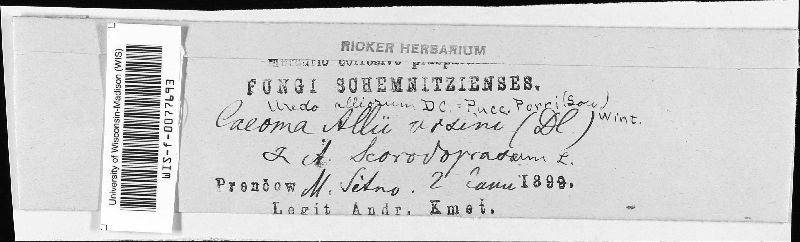 RICKER HERBARIUM
FUNGI SCHEMNITZIENSES.
Uredo alliorum DC. = Pucc. Porri (Sow) Wint.
Caeoma Allii ursini (DC)
A. Scorodoprasum L.
Prenčow M. Sitno. 2 Junii 1899.
Legit Andr. Kmeť.
University of Wisconsin-Madison (WIS)
WIS-f-0077693